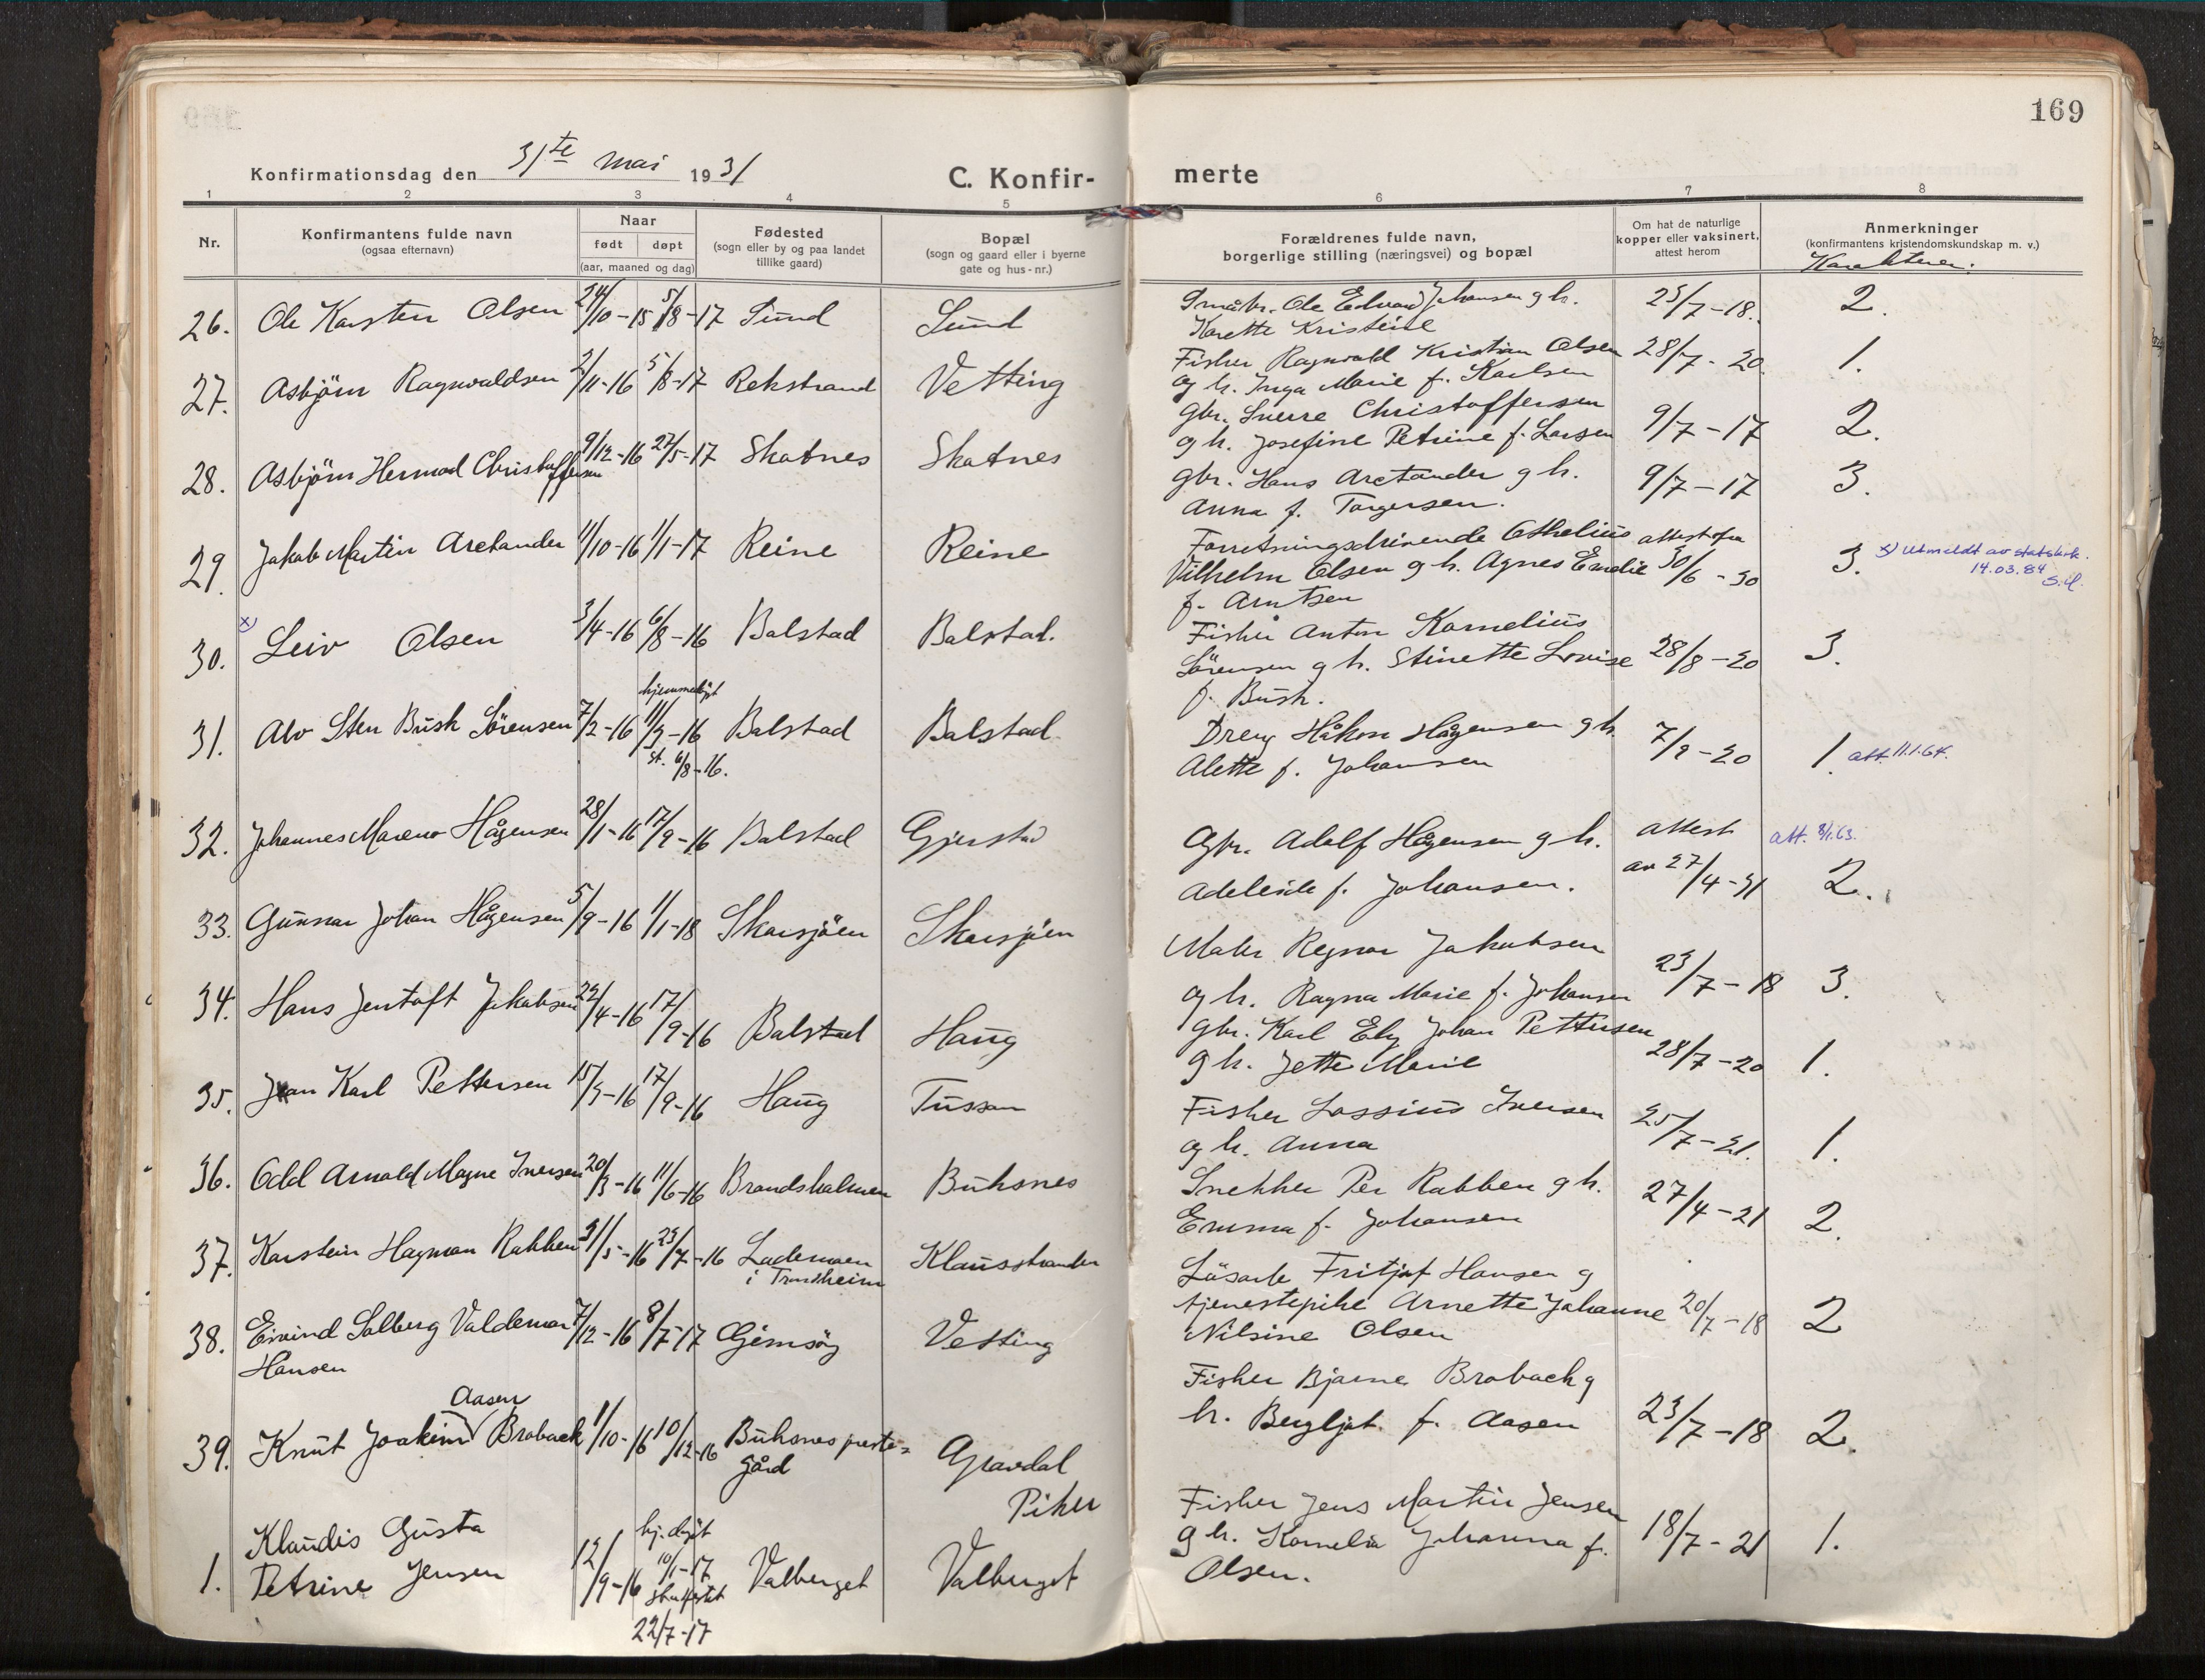 169
Konfirmationsdag den 31te mai 1931
C. Konfir-
merte
1 2 3 4 5 6 7 8
Nr.
Konfirmantens fulde navn
(ogsaa efternavn)
Naar
født døpt
(aar, maaned og dag)
Fødested
(sogn eller by og paa landet
tillike gaard)
Bopæl
(sogn og gaard eller i byerne
gate og hus-nr.)
Forældrenes fulde navn,
borgerlige stilling (næringsvei) og bopæl
Om hat de naturlige
kopper eller vaksinert,
attest herom
Anmerkninger
(konfirmantens kristendomskundskap m. v.)
Karakterer:
26. Ole Karsten Olsen 24/10-15 5/8-17 Sund Sund
Småbr. Ole Edvard Johansen g h.
Karette Kristine
23/7-18. 2.
27. Asbjörn Ragnvaldsen 2/11-16 5/8-17 Rekstrand Vetting
Fisker Ragnvald Kristian Olsen
og h. Inga Marie f. Karlsen
28/7-20. 1.
28. Asbjörn Hermod Christoffersen 9/12-16 27/5-17 Skatnes Skatnes
Gbr. Sverre Christoffersen
og h. Josefine Petrine f. Larsen
9/7-17 2.
29 Jakob Martin Arctander 11/10-16 1/1-17 Reine Reine
Gbr. Hans Arctander g h.
Anna f. Torgersen.
9/7-17 3.
30. x) Leiv Olsen 3/4-16 6/8-16 Balstad Balstad.
Forretningsdrivende Othelius
Vilhelm Olsen g h. Agnes Emelie
f. Arntsen
attest fra
30/6-30 3. x) Utmeldt av statskirk.
14.03.84
31. Alv Sten Busk Sörensen 7/2-16 hjemmedöpt 11/3-16 Balstad Balstad
st. 6/8-16.
Fisker Anton Kornelius
Sörensen g h. Stinette Lovise
f. Busk.
28/8-20 3.
32. Johannes Hågensen 28/1-16 17/9-16 Balstad Gjerstad
Dreng Håkon Hågensen g h.
Alette f. Johansen
7/9-20 1. att. 11.1.64.
33. Gunnar Johan Hågensen 5/9-16 1/1-18 Skarsjöen Skarsjöen
Gbr. Adolf Hågensen g h.
Adeleide f. Johansen.
attest
av 27/4-31 att. 8/1.63. 2.
34. Hans Jentoft Jakobsen 22/4-16 17/9-16 Balstad Haug
Maler Regnor Jakobsen
og h. Ragna Marie f. Johansen
23/7-18 3.
35. Jean Karl Pettersen 15/3-16 17/9-16 Haug Tussan
Gbr. Karl Johan Pettersen
g h. Jette Marie
28/7-20 1.
36. Odd Arnold Magne Iversen 20/3-16 11/6-16 Brandsholmen Buksnes
Fisker Lassius Iversen
og h. Anna
25/7-21. 1.
37. Karstein Hagman Rabben 31/5-16 23/7-16 Lademoen
i Trondheim Klausstranden
Snekker Per Rabben g h.
Emma f. Johansen
27/4-21 2.
38. Eivind Solberg Valdemar 7/12-16 8/7-17 Gimsöy Vetting
Hansen
Lösarb. Fritjof Hansen g
tjenestepike Arnette Johanne
Nilsine Olsen
20/7-18 2
Aasen
39. Knut Joakim Braback 1/10-16 10/12-16 Buksnes preste=
gård Gravdal
Fisker Bjarne Braback g
h. Bergljot f. Aasen
23/7-18 2.
Piker
1. Klaudis Gusta
Petrine Jensen 12/9-16 hj. døpt
10/1-17
stadfestet
22/7-17 Valberget Valberget
Fisker Jens Martin Jensen
g h. Kornelia Johanna f.
Olsen.
18/7-21 1.